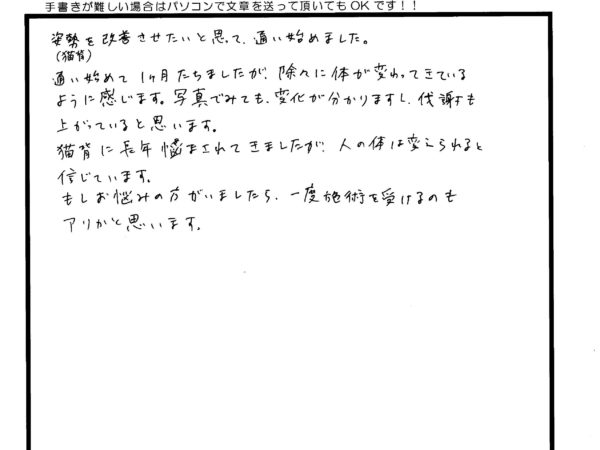 手書きが難しい場合はパソコンで文章を送って頂いてもOKです！！
姿勢を改善させたいと思って、通い始めました。
(猫背)
通い始めて1ヶ月たちましたが、除々に体が変わってきている
ように感じます。写真でみても、変化が分かりますし、代謝も
上がっていると思います。
猫背に長年悩まされてきましたが、人の体は変えられると
信じています。
もしお悩みの方がいましたら、一度施術を受けるのも
アリかと思います。